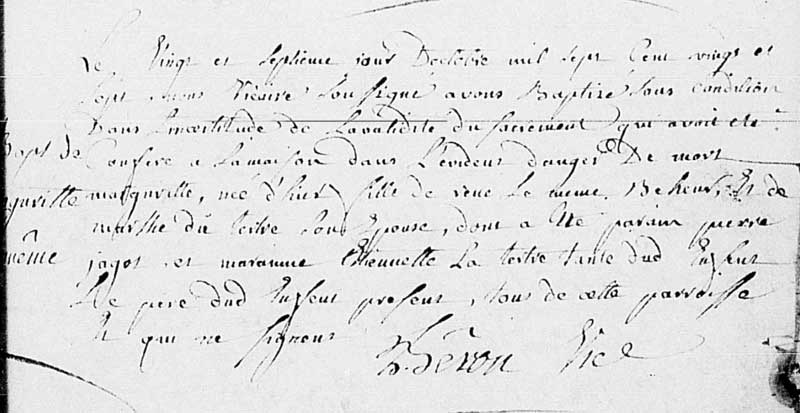 Le Vingt et septieme jour D'octobre mil sept Cent vingt et
sept nous Vicaire Soussigné avons Baptizé sous condition
Dans L'incertitude de La validité du sacrement qui avoit eté
Bapt de Conféré a La maison dans L'évident danger De mort
marguritte, née d'hier fille de rene Le même et de
marthe du tertre son Epouse, dont a été parain pierre
même jagot et maranne Etiennette La tertre tante dud Enfent
Le pere dud Enfent present, tous de cette parroisse
Et qui ne signent
Vic